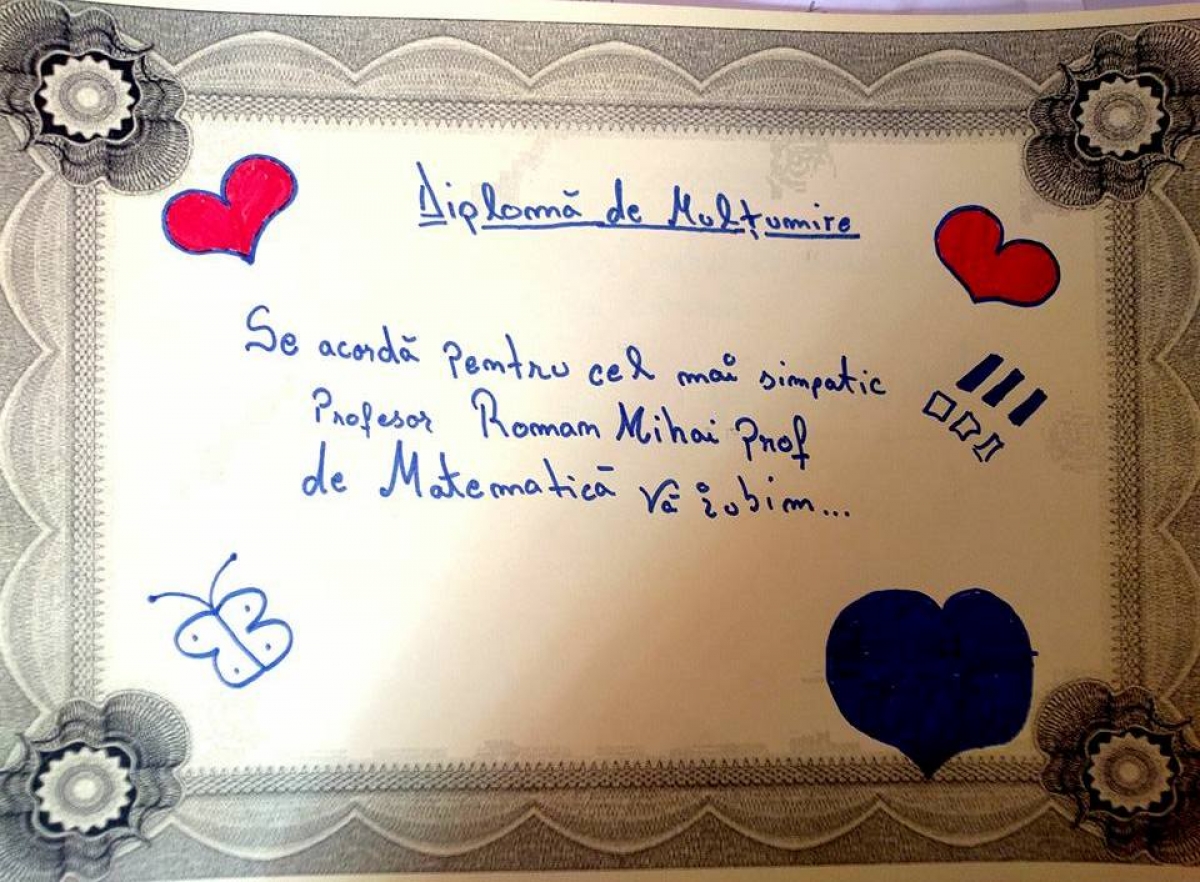 Diplomă de Mulțumire
Se acordă pentru cel mai simpatic
Profesor Roman Mihai Prof
de Matematică Vă iubim...
!!!